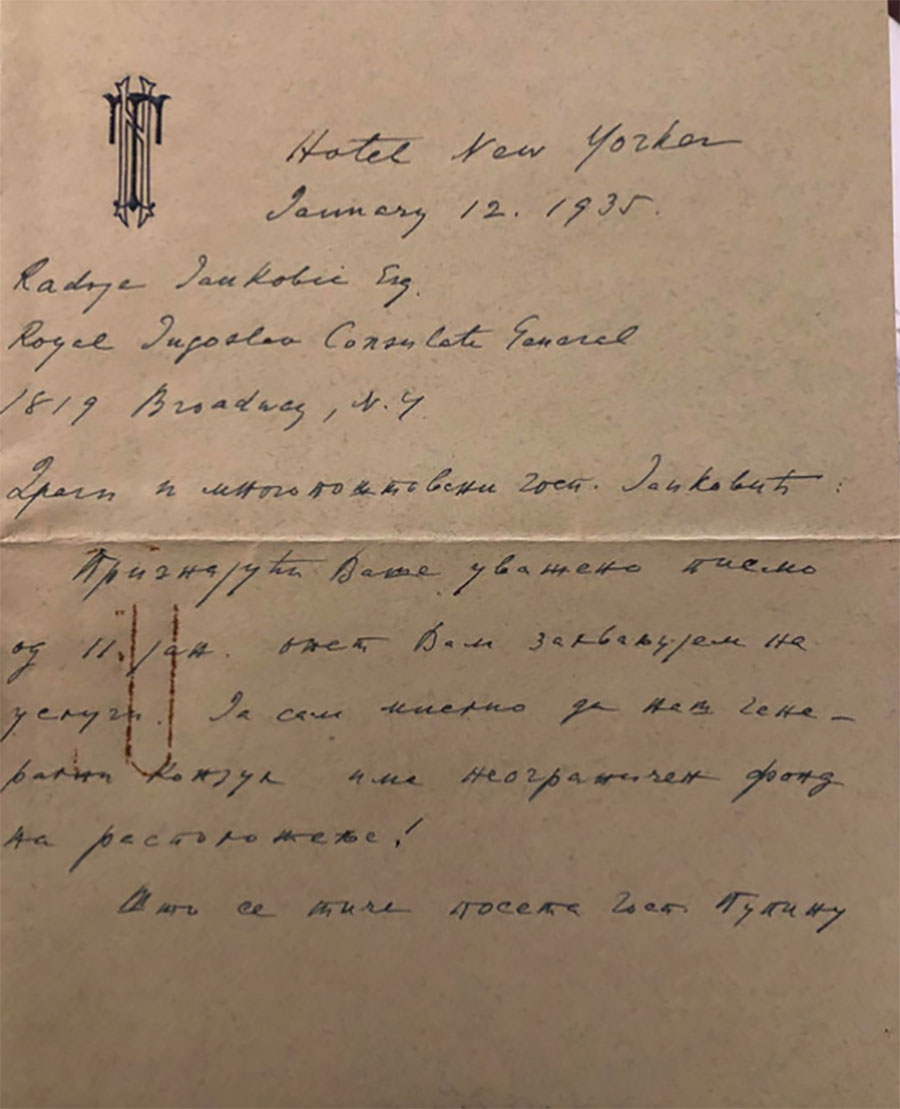 Hotel New Yorker
January 12. 1935.
Radoje Jankovic Esq.
Royal Jugoslav Consulate General
1819 Broadway, N.Y.
Драги и многопоштовани госп. Јанковић:
Признајући Ваше уважено писмо
од 11. јан. опет Вам захваљујем на
услуги. Ја сам мислио да наш гене-
рални Конзул има неограничен фонд
на расположење!
Што се тиче посета госп. Пупину